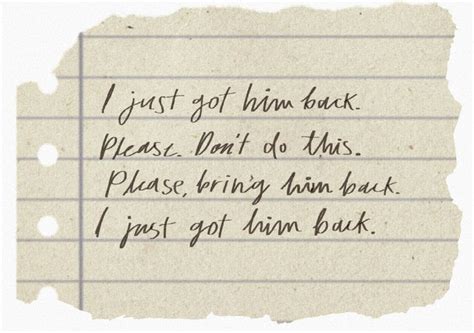 I just got him back.
Please. Don't do this.
Please, bring him back.
I just got him back.